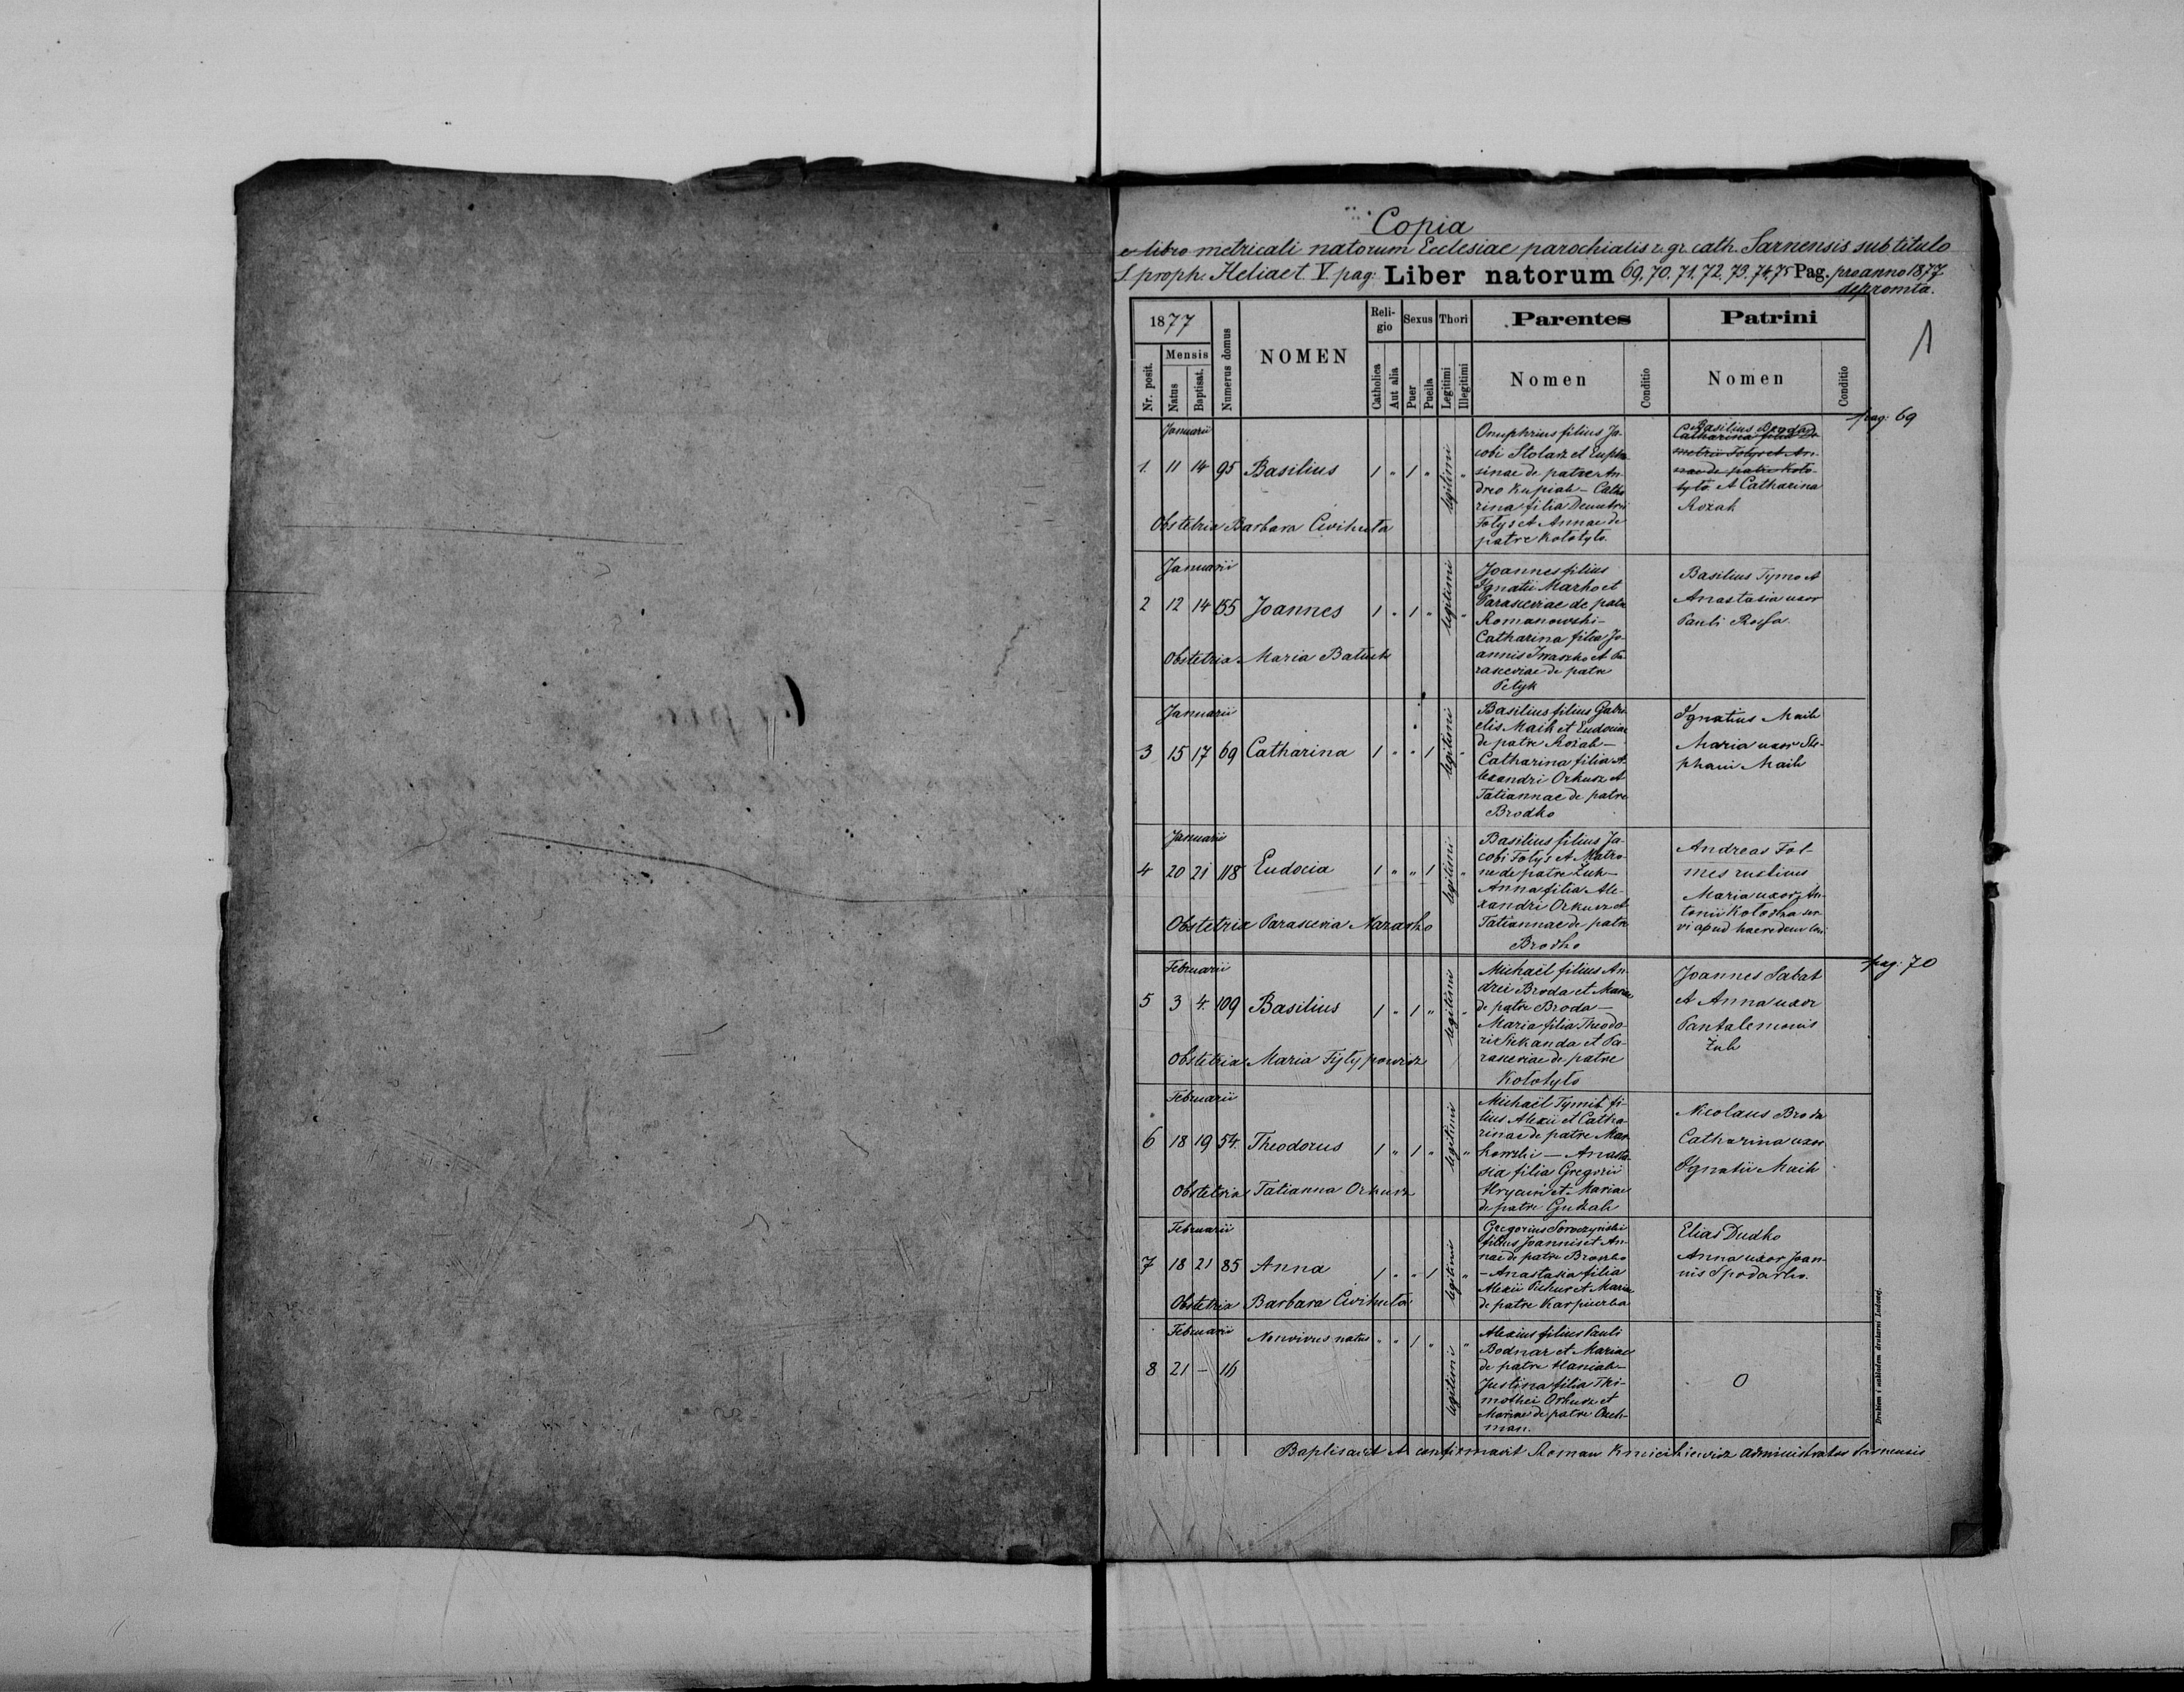 Copia
e libro metricali natorum Ecclesiae parochialis r. gr. cath. Sarnensis sub titulo
S. proph. Heliae t. V pag: Liber natorum 69, 70, 71, 72, 73, 74, 75 Pag. pro anno 1877
depromta.
1
1877 Numerus domus NOMEN Religio Sexus Thori Parentes Patrini
Nr. posit. Mensis Natus Baptisat. Catholica Aut alia Puer Puella Legitimi Illegitimi Nomen Conditio Nomen Conditio
pag: 69
Januarii
1. 11 14 95 Basilius 1 " 1 " legitimi "
Obstetrix Barbara Cwihuta
Onuphrius filius Ja-
cobi Stolarz et Euphro
sinae de patre An-
dreo Kupiak — Catha
rina filia Demetrii
Fotys et Annae de
patre Kołotyło.
Basilius Broda
Catharina filia De-
metrii Fotys et An-
nae de patre Koło-
tyło et Catharina
Rożak
Januarii
2 12 14 155 Joannes 1 " 1 " legitimi "
Obstetrix Maria Batiuk
Joannes filius
Ignatii Marko et
Parasceviae de patre
Romanowski —
Catharina filia Jo-
annis Iwaszko et Pa
rasceviae de patre
Petyk
Basilius Tymo et
Anastasia uxor
Pauli Rossa.
Januarii
3 15 17 69 Catharina 1 " " 1 legitimi "
Basilius filius Gabri
elis Maik et Eudociae
de patre Rożak —
Catharina filia A-
lexandri Orkusz et
Tatiannae de patre
Brodko
Ignatius Maik
Maria uxor Ste-
phani Maik
Januarii
4 20 21 118 Eudocia 1 " " 1 legitimi "
Obstetrix Parascevia
Basilius filius Ja-
cobi Fotys et Matro-
nae de patre Żuk —
Anna filia Ale-
xandri Orkusz et
Tatiannae de patre
Brodko
Andreas Fol-
mes rusticus
Maria uxor An-
tonii Kołodka ser
vi apud haeredem loci
pag: 70
Februarii
5 3 4. 109 Basilius 1 " 1 " legitimi "
Obstetrix Maria Fyłypowicz
Michaël filius An-
drei Broda et Mariae
de patre Broda —
Maria filia Theodo-
ri Piekanda et Pa-
rasceviae de patre
Kołotyło
Joannes Sabat
et Anna uxor
Pantalemonis
Żuk
Februarii
6 18 19 54. Theodorus 1 " 1 " legitimi "
Obstetrix Tatianna Orkusz
Michaël Tymit fi-
lius Alexii et Catha-
rinae de patre Mar
kowski — Anasta
sia filia Gregorii
Hryciw et Mariae
de patre
Nicolaus Broda
Catharina uxor
Ignatii Maik
Februarii
7 18 21 85 Anna 1 " " 1 legitimi "
Obstetrix Barbara Cwihuta
Gregorius Soroczyński
filius Joannis et An-
nae de patre Brouzko
— Anastasia filia
Alexii et Mariae
de patre
Elias Dudko
Anna uxor Joan-
nis Spodarko.
Februarii
8 21 — 16 Non vivus natus " " 1 " legitimi "
Alexius filius Pauli
Bodnar et Mariae
de patre Haniak —
Justina filia Thi-
mothei Orkusz et
Mariae de patre
O
Baptisavit et confirmavit Roman Kmicikiewicz administrator Sarnensis
Drukiem i nakładem drukarni Ludowej.